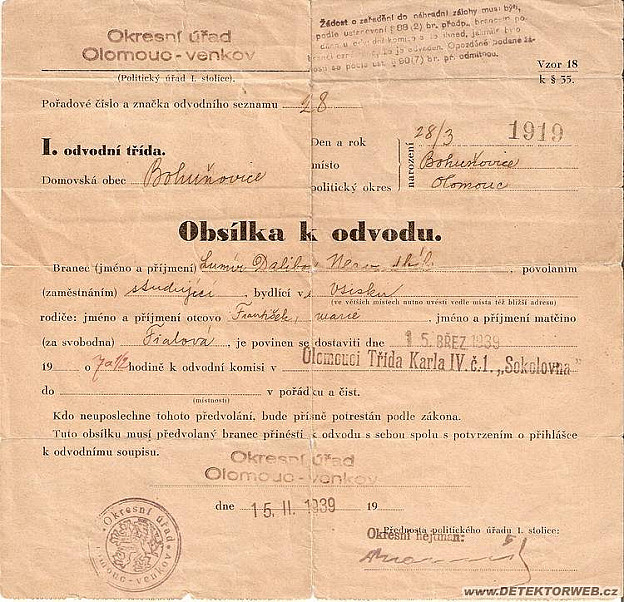 Okresní úřad
Olomouc-venkov
(Politický úřad I. stolice).
Žádost o zařadění do náhradní zálohy musí býti,
podle ustanovení § (2) br. předp., brancem
odveden. Opozděně podané žá-
dosti se podle ust. § 90(7) br. př. odmítnou.
Vzor 18
k § 35.
Pořadové číslo a značka odvodního seznamu 28
I. odvodní třída.
Domovská obec Bohuňovice
Den a rok
místo
politický okres
narození
28/3 1919
Bohuňovice
Olomouc
Obsílka k odvodu.
Branec (jméno a příjmení) Lumír Dalibor , povoláním
(zaměstnáním) studující , bydlící v
(ve větších městech nutno uvésti vedle místa též bližší adresu)
rodiče: jméno a příjmení otcovo František, marie , jméno a příjmení matčino
(za svobodna) Fialová , je povinen se dostaviti dne 15. BŘEZ. 1939
19 o 7a1/2 hodině k odvodní komisi v Olomouci Třída Karla IV. č.1. „Sokolovna"
do v pořádku a čist.
(místnosti)
Kdo neuposlechne tohoto předvolání, bude přísně potrestán podle zákona.
Tuto obsílku musí předvolaný branec přinésti k odvodu s sebou spolu s potvrzením o přihlášce
k odvodnímu soupisu.
Okresní úřad
Olomouc-venkov
dne 15. II. 1939 19
Přednosta politického úřadu I. stolice:
Okresní hejtman:
Okresní úřad
Olomouc-venkov
www.DETEKTORWEB.cz